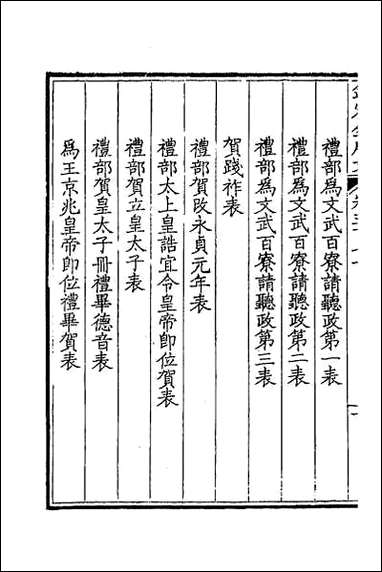 禮部為文武百寮請聽政第一表
禮部為文武百寮請聽政第二表
禮部為文武百寮請聽政第三表
賀踐祚表
禮部賀改永貞元年表
禮部太上皇誥宜令皇帝即位賀表
禮部賀立皇太子表
禮部賀皇太子冊禮畢德音表
為王京兆皇帝即位禮畢賀表